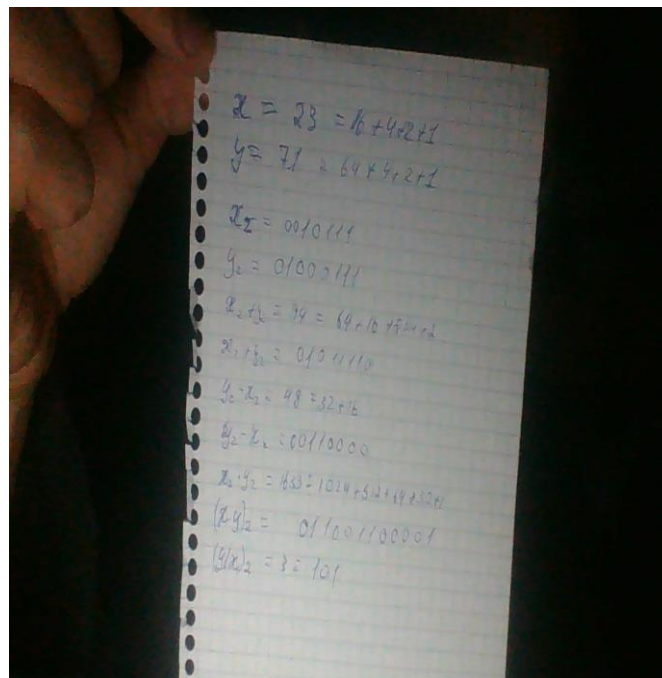 x = 23 = 16+4+2+1
y = 71 = 64+4+2+1
x₂ = 0010111
y₂ = 01000111
x₂+y₂ = 94 = 64+16+8+4+2
x₂+y₂ = 01011110
y₂-x₂ = 48 = 32+16
y₂-x₂ = 00110000
x₂·y₂ = 1633 = 1024+512+64+32+1
(xy)₂ = 011001100001
(y/x)₂ = 3 = 101